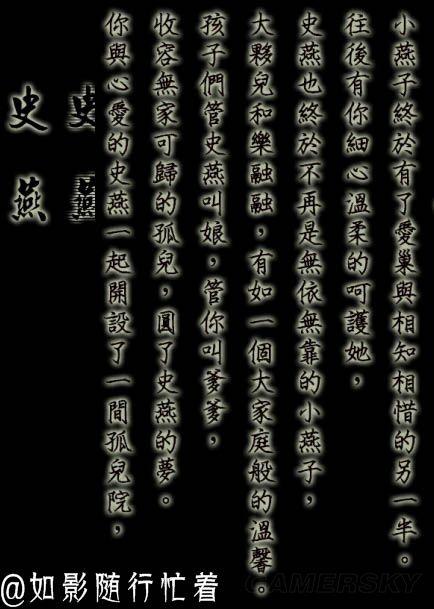 史燕
史燕
你與心愛的史燕一起開設了一間孤兒院，
收容無家可歸的孤兒，圓了史燕的夢。
孩子們管史燕叫娘，管你叫爹爹，
大夥兒和樂融融，有如一個大家庭般的溫馨。
史燕也終於不再是無依無靠的小燕子，
往後有你細心溫柔的呵護她，
小燕子終於有了愛巢與相知相惜的另一半。
@如影随行忙着
GAMERSKY